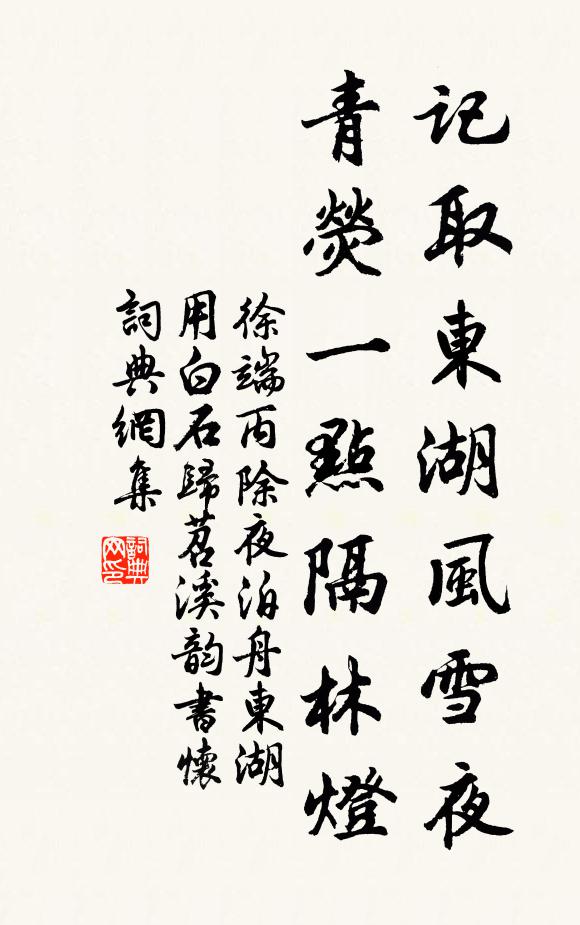 記取東湖風雪夜
青熒一點隔林燈
徐端丙除夜泊舟東湖
用白石歸苕溪韵書懷
詞典網集
詞典
网印